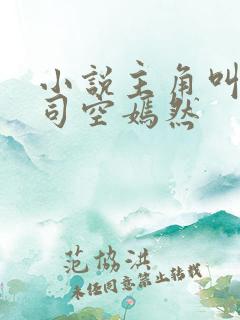 小说主角叫
司空嫣然
范协洪
未经同意禁止转载